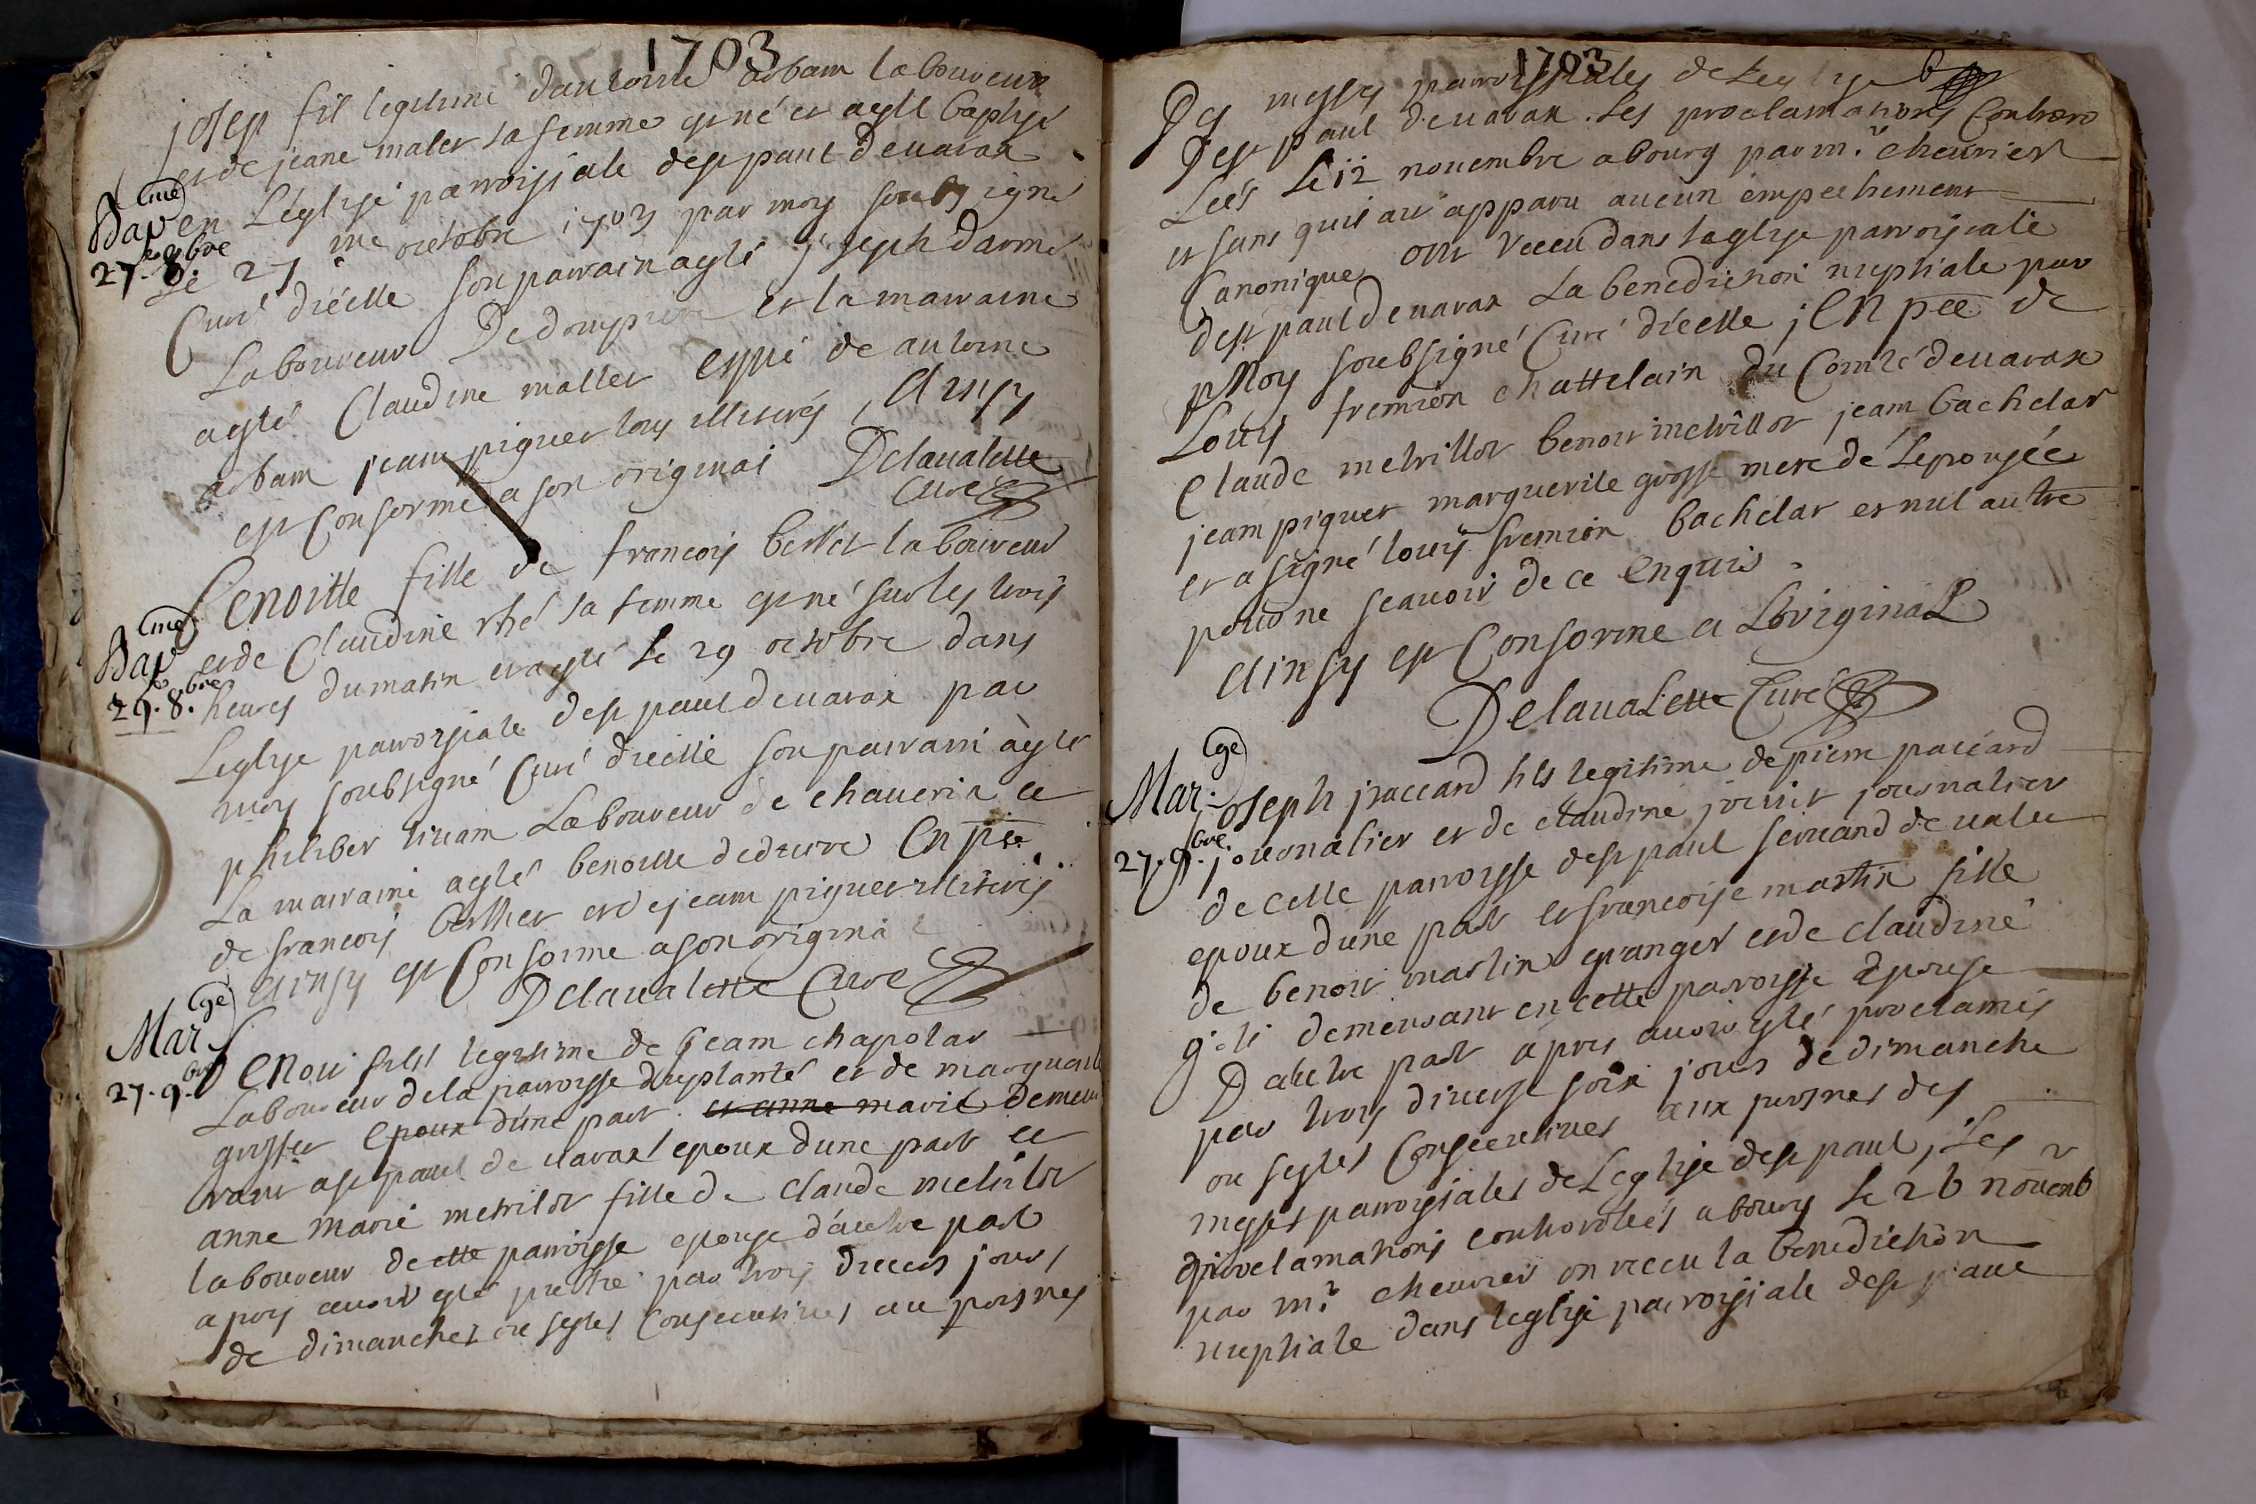 1703
josep fil legitime dantoine arbam laboureur
et de jeane maler sa femme est né et aesté baptisé
Bap^(me) en Léglise parroissiale de st paul devarax
27. 8.^(bre) Le 27 me octobre 1703 par moy soubsigné
Curé dicelle son parrain a esté joseph darme
Laboureur De dompierre et la marraine
a esté Claudine maller espié de antoine
arbam jeam piguet tous illiterés, Ainsy
est Conforme a son original Delavalette
Curé
Benoitte fille de francois bertier laboureur
Bap^(me) et de Claudine rhé sa femme est né sur les trois
29. 8.^(bre) heures du matin et aesté le 29 octobre dans
Leglise parroissiale de st paul devarax par
moy soubsigné Curé dicelle son parrain a esté
philiber Laboureur de chaveria et
La marraine a esté benoitte En pce
de francois berthier et de jeam piguet illiterés
Ainsy est Conforme a son original
Delavalette Curé
Mar^(ge) Benoi fils legitime de jeam chapolar
27. 9.^(bre) Laboureur de la parroisse du planté et de marguaite
grosset Epoux dune part et anne marie demeu
rant a st paul de varax epoux dune part et
anne marie metrilot fille de claude metrilot
laboureur de cette parroisse epouse dautre part
apres avoir esté par trois divers jours
de dimanches ou festes Consecutives au prosnes
1703
Des messes parroissiales de Leglise
De st paul devarax. Les proclamations Contrero
Leés Le 12 novembre a bourg par mr. chevrier
et sans quil ait apparu aucun empechement
Canonique ont receu dans laglise parroissiale
de st paul devarax La benediction nuptiale par
Moy soubsigné Curé dicelle, En pce de
Louys fremion chattelain du Comté devarax
Claude metrillot benoit metrillot jeam bachelar
jeam piguet marguerite grosse mere dé Lepousée
et a signé louys fremion bachelar et nul autre
pour ne scavoir de ce Enquis.
Ainsy est Conforme a Loriginal
Delavalette Curé
Mar.^(ge) joseph jraccard fils legitime de pierre paccard
27. 9.^(bre) journalier et de claudine journalier
de cette parroisse de st paul servand de valet
epoux dune part et francoise martin fille
de benoit martin granger et de claudine
demeurant en cette parroisse Epouse
Dautre part apres avoir esté proclamés
par trois diverse foix jours de dimanche
ou festes Consecutives aux prosnes des
messes parroissiales de Leglise de st paul, Les
proclamations controlleés a bourg le 26 novemb
par mr. chevrier on receu la benediction
nuptiale dans leglise parroissiale de st paul